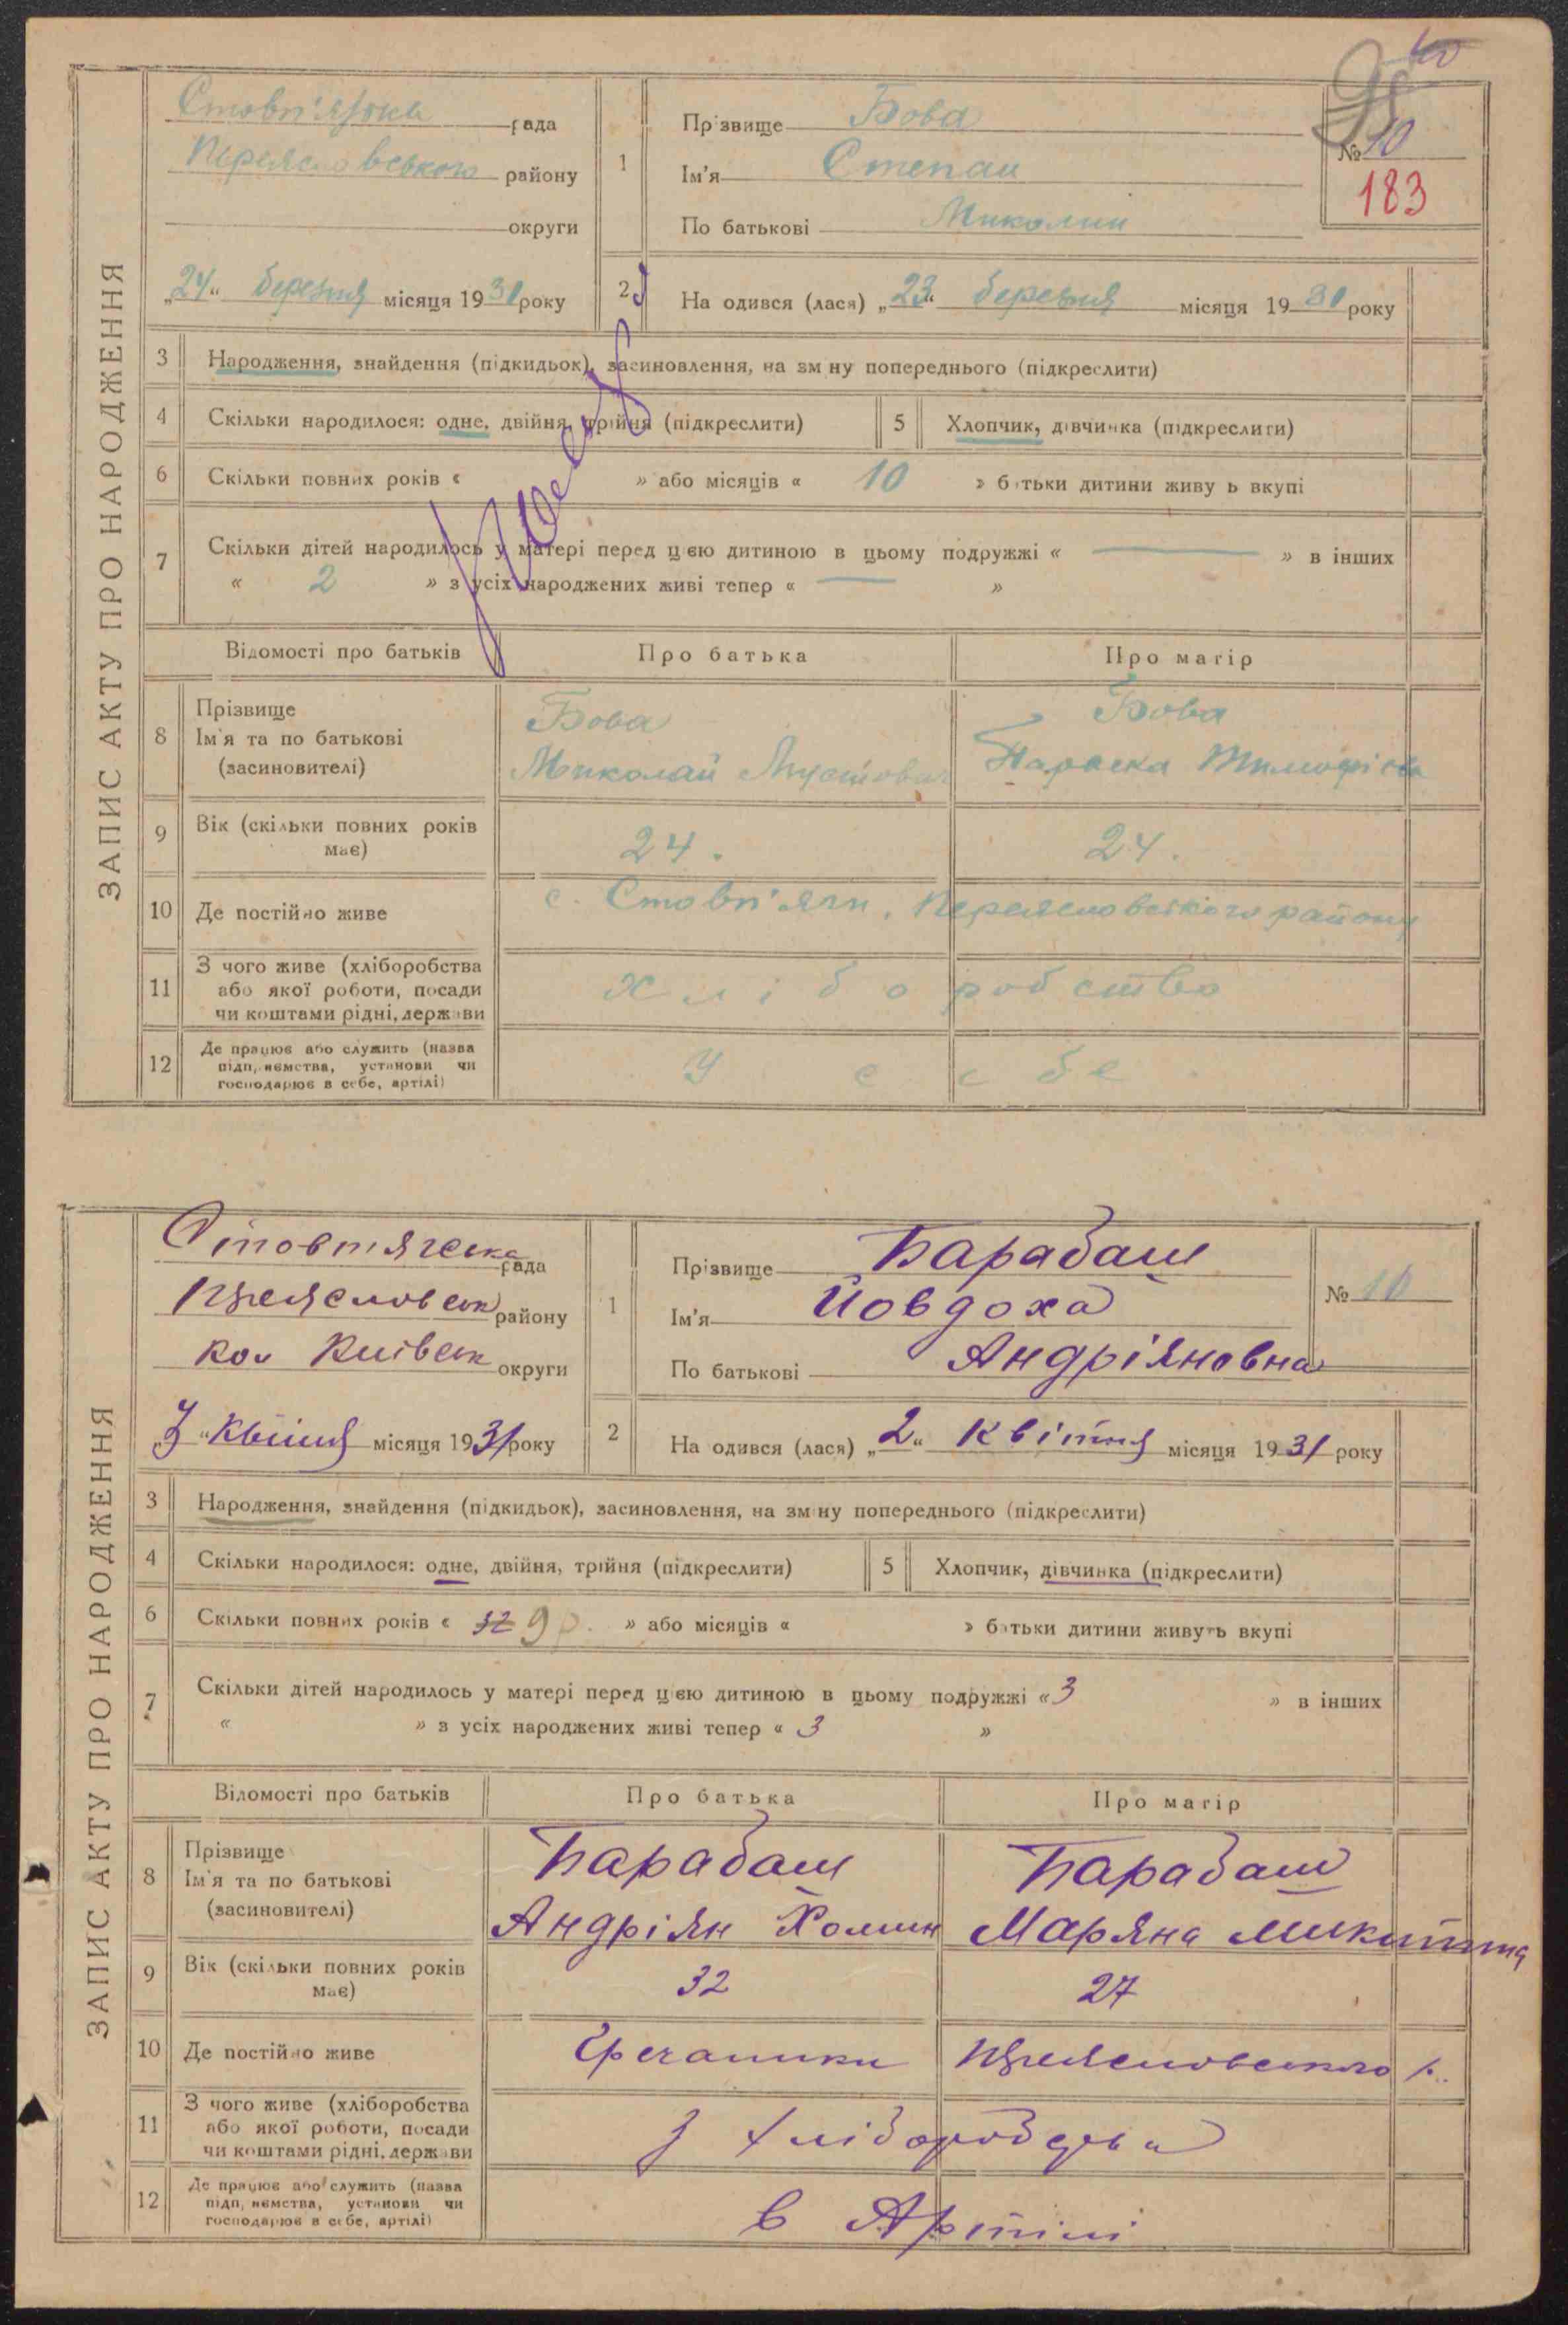 40
ЗАПИС АКТУ ПРО НАРОДЖЕННЯ
рада
району
округи
„24“ березня місяця 1931 року
1
Прізвище Бова
Ім'я Степан
По батькові Миколин
№ 10
183
2
Народився (лася) „23“ березня місяця 1931 року
3 Народження, знайдення (підкидьок), засиновлення, на зміну попереднього (підкреслити)
4 Скільки народилося: одне, двійня, трійня (підкреслити)
5 Хлопчик, дівчинка (підкреслити)
6 Скільки повних років « » або місяців « 10 » батьки дитини живуть вкупі
7 Скільки дітей народилось у матері перед цією дитиною в цьому подружжі « — » в інших
« 2 » з усіх народжених живі тепер « — »
Відомості про батьків Про батька Про матір
8 Прізвище
Ім'я та по батькові
(засиновителі)
Бова
Миколай
Бова
Параска Тимофієва
9 Вік (скільки повних років має)
24. 24.
10 Де постійно живе
с. Стовп'яги, Переяславського району
11 З чого живе (хліборобства
або якої роботи, посади
чи коштами рідні, держави
хліборобство
12 Де працює або служить (назва
підприємства, установи чи
господарює в себе, артілі)
У себе.
ЗАПИС АКТУ ПРО НАРОДЖЕННЯ
рада
району
Киівськ округи
„3“ Квітня місяця 1931 року
1
Прізвище Барабаш
Ім'я Йовдоха
По батькові Андріяновна
№ 10
2
Народився (лася) „2“ Квітня місяця 1931 року
3 Народження, знайдення (підкидьок), засиновлення, на зміну попереднього (підкреслити)
4 Скільки народилося: одне, двійня, трійня (підкреслити)
5 Хлопчик, дівчинка (підкреслити)
6 Скільки повних років « 32 9 р. » або місяців « » батьки дитини живуть вкупі
7 Скільки дітей народилось у матері перед цією дитиною в цьому подружжі « 3 » в інших
« » з усіх народжених живі тепер « 3 »
Відомості про батьків Про батька Про матір
8 Прізвище
Ім'я та по батькові
(засиновителі)
Барабаш
Андріян Хомин
Барабаш
Маряна Микитина
9 Вік (скільки повних років має)
32 27
10 Де постійно живе
Гречаники Переясловського р.
11 З чого живе (хліборобства
або якої роботи, посади
чи коштами рідні, держави
з
12 Де працює або служить (назва
підприємства, установи чи
господарює в себе, артілі)
в Артілі